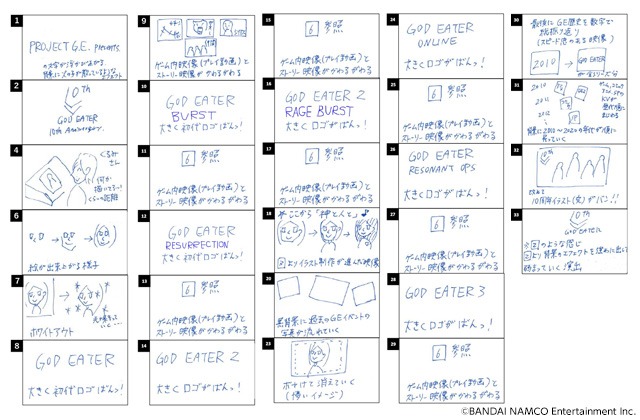 1
PROJECT G.E. presents
の文字が浮かびあがる
2
10th
GOD EATER
10th Anniversary
4
くるみ
さん
何か
描いてる…!
くらいの距離
6
絵が出来上がる様子
7
ホワイトアウト
8
GOD EATER
大きく初代ロゴばんっ!
9
ゲーム内映像(プレイ動画)と
ストーリー映像がかわるがわる
10
GOD EATER
BURST
大きく初代ロゴばんっ!
11
6 参照
ゲーム内映像(プレイ動画)と
ストーリー映像がかわるがわる
12
GOD EATER
RESURRECTION
大きくロゴがばんっ!
13
6 参照
ゲーム内映像(プレイ動画)と
ストーリー映像がかわるがわる
14
GOD EATER 2
大きくロゴがばんっ!
15
6 参照
ゲーム内映像(プレイ動画)と
ストーリー映像がかわるがわる
16
GOD EATER 2
RAGE BURST
大きくロゴがばんっ!
17
6 参照
ゲーム内映像(プレイ動画)と
ストーリー映像がかわるがわる
18
ここから「神と人と」♪
よりイラスト制作が進んだ映像
20
黒背景に過去のGEイベントの
写真が流れていく
23
ボヤけて消えていく
(儚いイメージ)
24
GOD EATER
ONLINE
大きくロゴがばんっ!
25
6 参照
ゲーム内映像(プレイ動画)と
ストーリー映像がかわるがわる
26
GOD EATER
RESONANT OPS
大きくロゴがばんっ!
27
6 参照
ゲーム内映像(プレイ動画)と
ストーリー映像がかわるがわる
28
GOD EATER 3
大きくロゴがばんっ!
29
6 参照
ゲーム内映像(プレイ動画)と
ストーリー映像がかわるがわる
30
最後にGE歴史を数字で
総振り返り
(スピード感のある映像)
2010
GOD EATER
31
2010
2011
2012
32
10th
改めて
10周年イラスト(完)がバン!!
33
10th
GOD EATER
のような感じ
©BANDAI NAMCO Entertainment Inc.